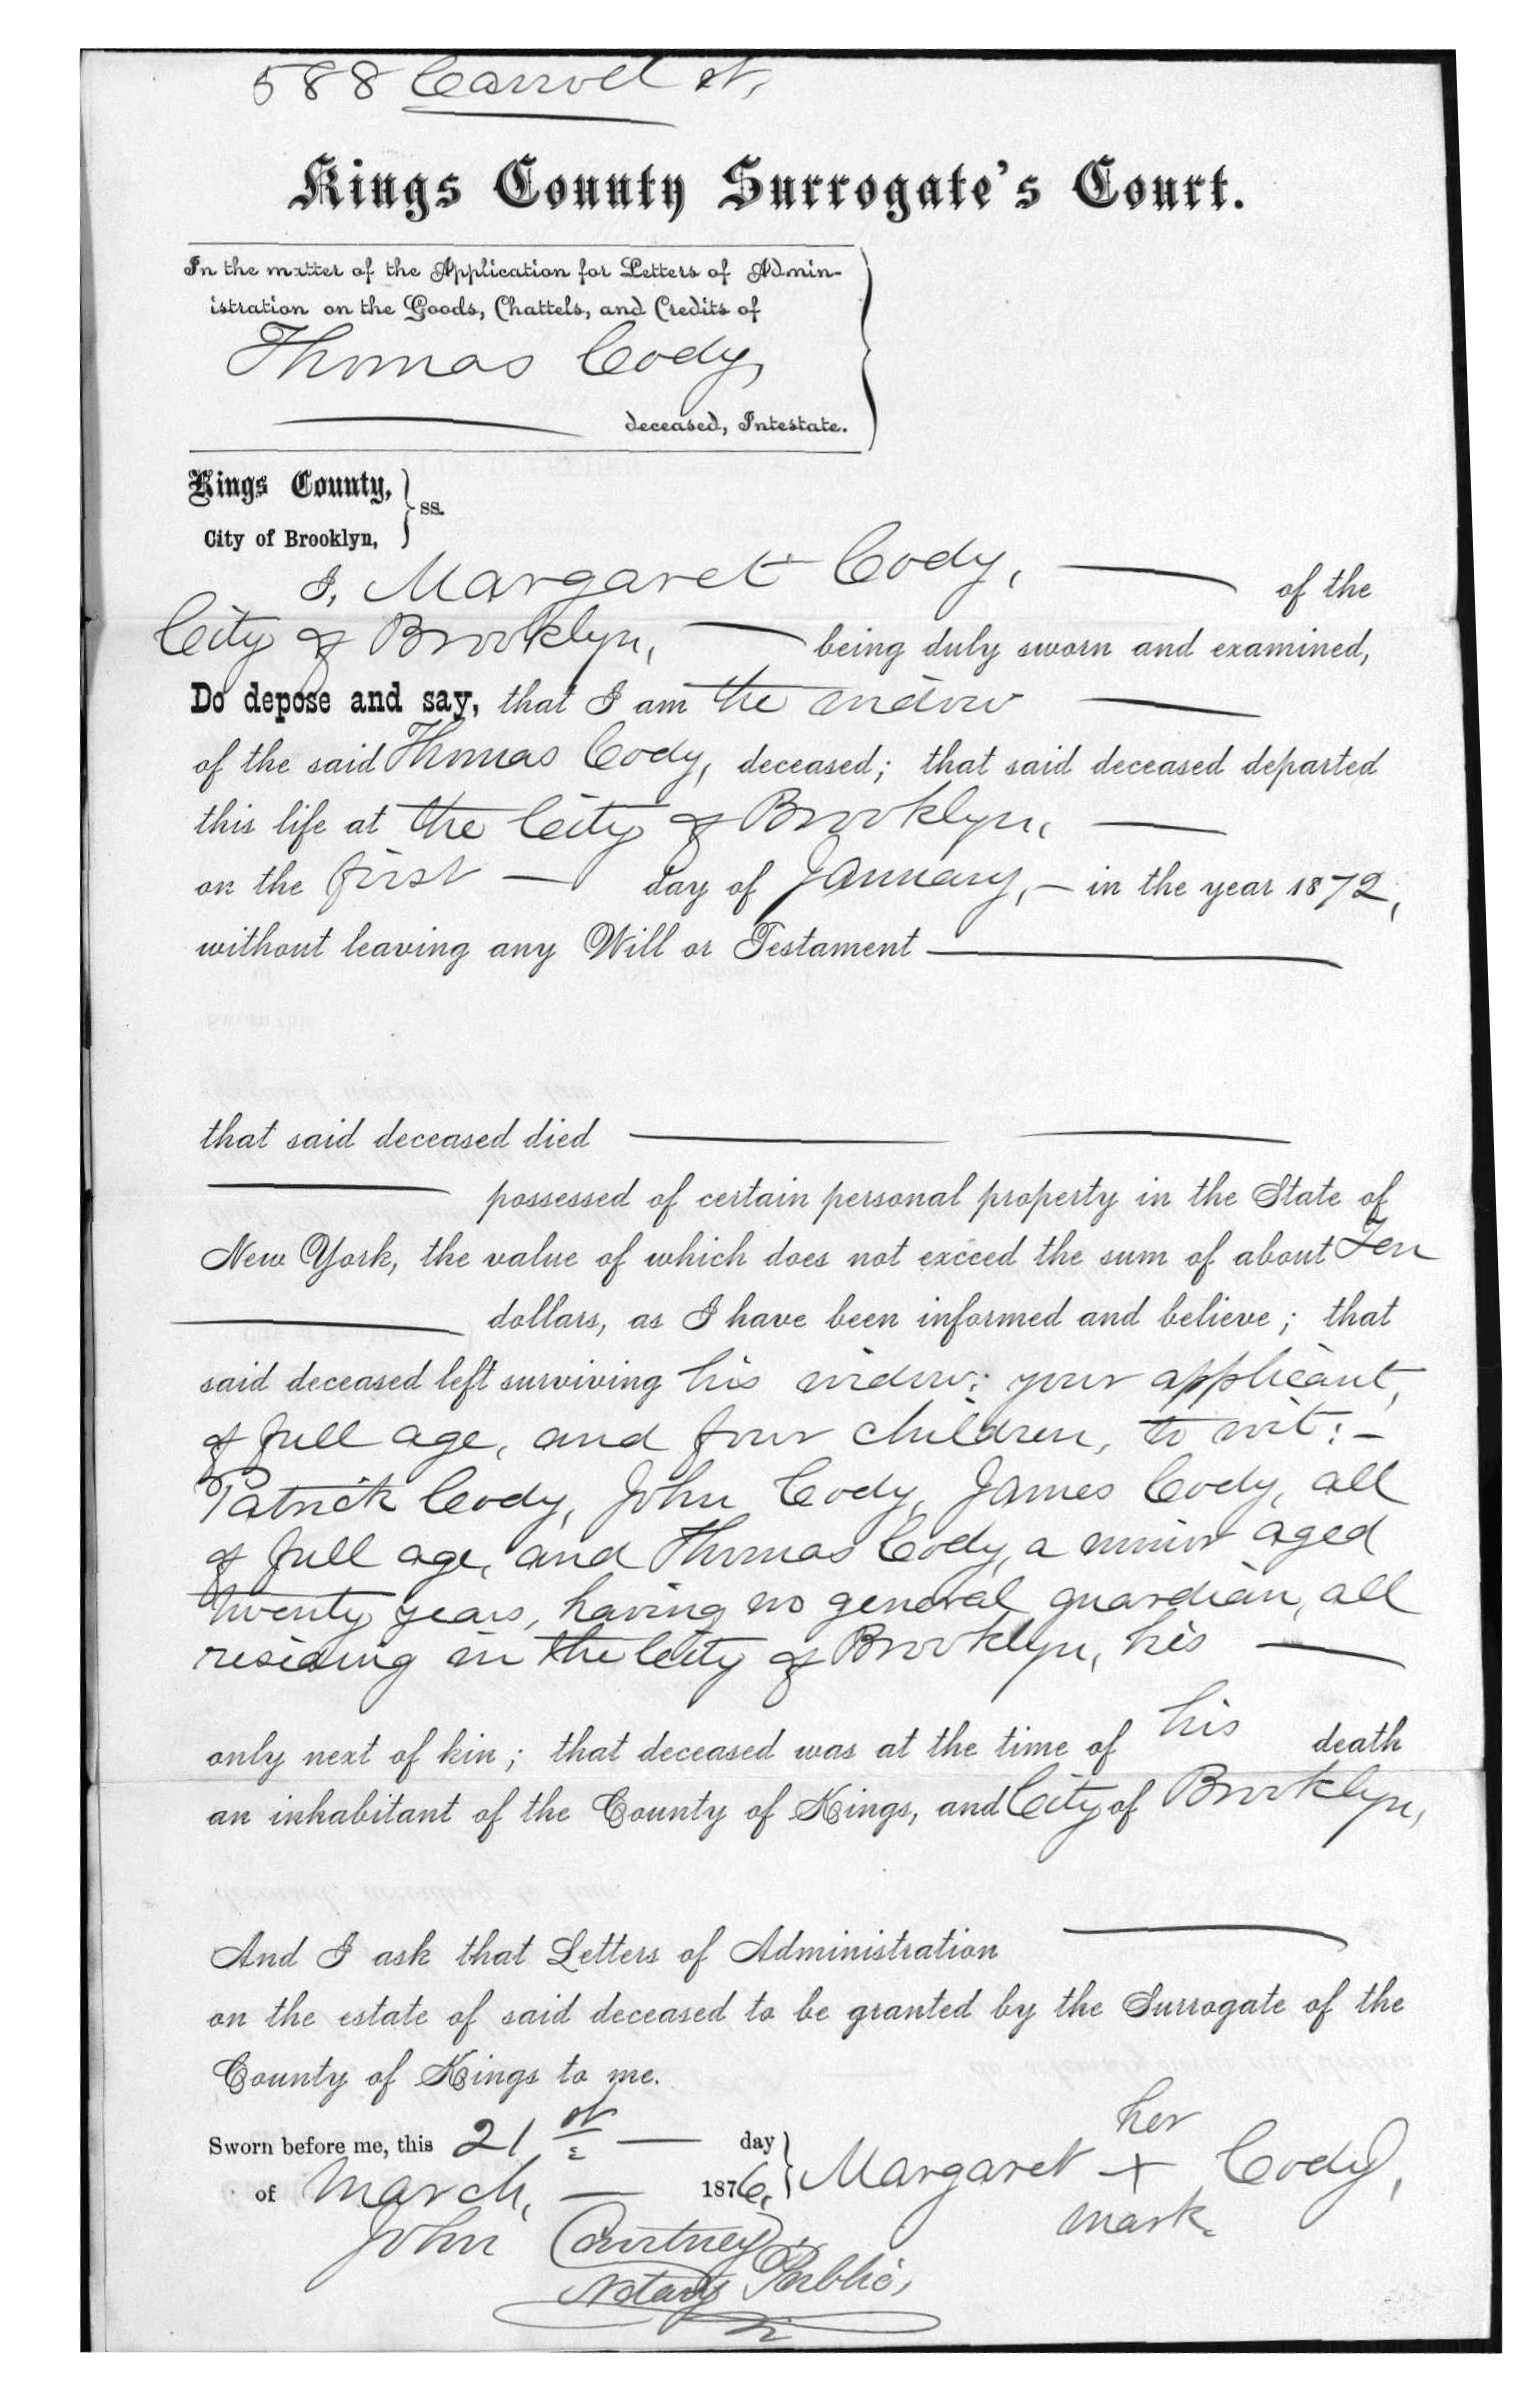 588 Carroll st,
Kings County Surrogate's Court.
In the matter of the Application for Letters of Admin-
istration on the Goods, Chattels, and Credits of
Thomas Cody,
deceased, Intestate.
Kings County,
City of Brooklyn, } ss.
I, Margaret Cody, — of the
City of Brooklyn, — being duly sworn and examined,
Do depose and say, that I am the widow —
of the said Thomas Cody, deceased; that said deceased departed
this life at the City of Brooklyn, —
on the first — day of January, — in the year 1872,
without leaving any Will or Testament —
that said deceased died — —
— possessed of certain personal property in the State of
New York, the value of which does not exceed the sum of about Ten
— dollars, as I have been informed and believe; that
said deceased left surviving his widow: your applicant,
of full age, and four children, to wit:-
Patrick Cody, John Cody, James Cody, all
of full age, and Thomas Cody, a minor aged
twenty years, having no general guardian, all
residing in the City of Brooklyn, his —
only next of kin; that deceased was at the time of his death
an inhabitant of the County of Kings, and City of Brooklyn,
And I ask that Letters of Administration —
on the estate of said deceased to be granted by the Surrogate of the
County of Kings to me.
her
Sworn before me, this 21st — day
of March, — 1876, } Margaret + Cody,
mark.
John Courtney
Notary Public,